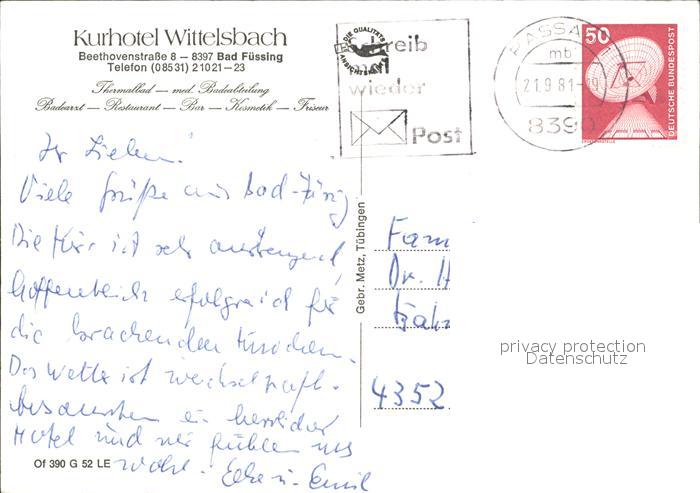 Kurhotel Wittelsbach
Beethovenstraße 8 – 8397 Bad Füssing
Telefon (08531) 21021–23
Thermalbad — med. Badeabteilung
Badearzt — Restaurant — Bar — Kosmetik — Friseur
Schreib
mal
wieder
Post
PASSAU
mb
21.9.81-19
8390
50
DEUTSCHE BUNDESPOST
Ihr Lieben!
Viele Grüße aus Bad-Füssing
Die Kur ist sehr anstrengend,
hoffentlich erfolgreich für
die krachenden Knochen.
Das Wetter ist wechselhaft.
ein herrliches
Hotel und wir fühlen uns
wohl. Elke u. Emil
Of 390 G 52 LE
Gebr. Metz, Tübingen
Fam
Dr. H
4352
privacy protection
Datenschutz